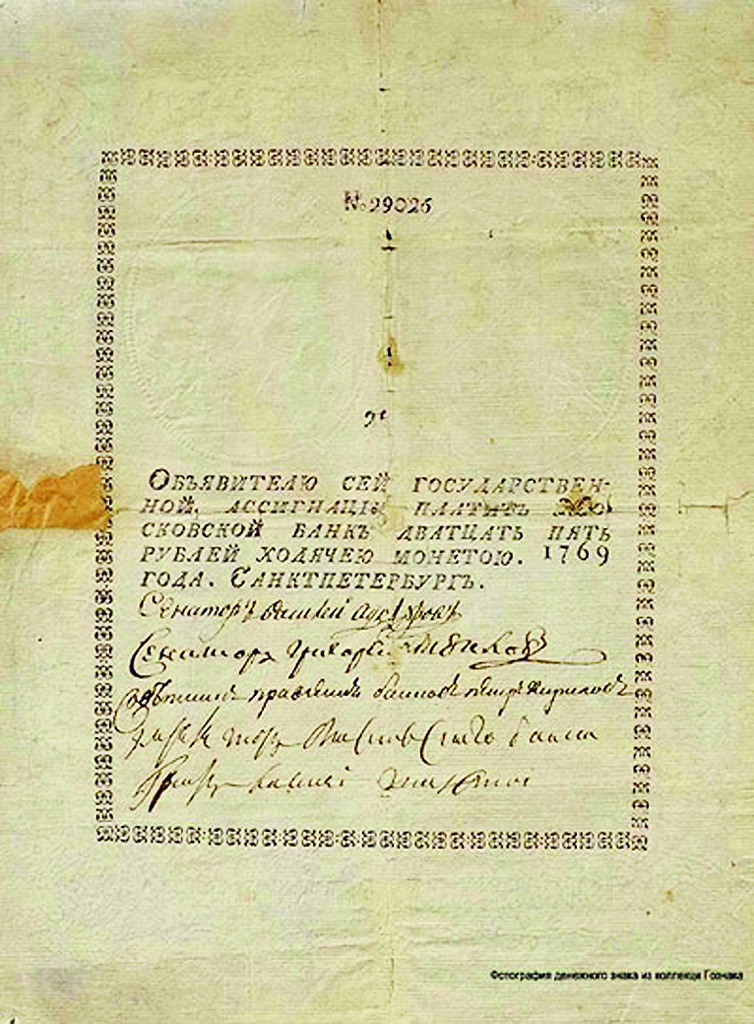 № 29025
ОБЪЯВИТЕЛЮ СЕЙ ГОСУДАРСТВЕН-
НОЙ. АССИГНАЦІИ ПЛАТИТЪ МО-
СКОВСКОЙ БАНКЪ ДВАТЦАТЬ ПЯТЬ
РУБЛЕЙ ХОДЯЧЕЮ МОНЕТОЮ. 1769
ГОДА. САНКТПЕТЕРБУРГЪ.
Сенаторъ
Сенаторъ
совѣтникъ правления банковъ петръ кириловъ
банка
Фотография денежного знака из коллекци Гознака